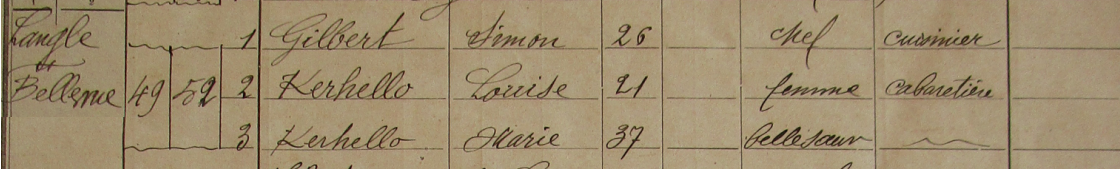 Langle 1 Gilbert Simon 26 chef cuisinier
et
Bellevue 49 52 2 Kerhello Louise 21 femme cabaretière
3 Kerhello Marie 37 belle sœur